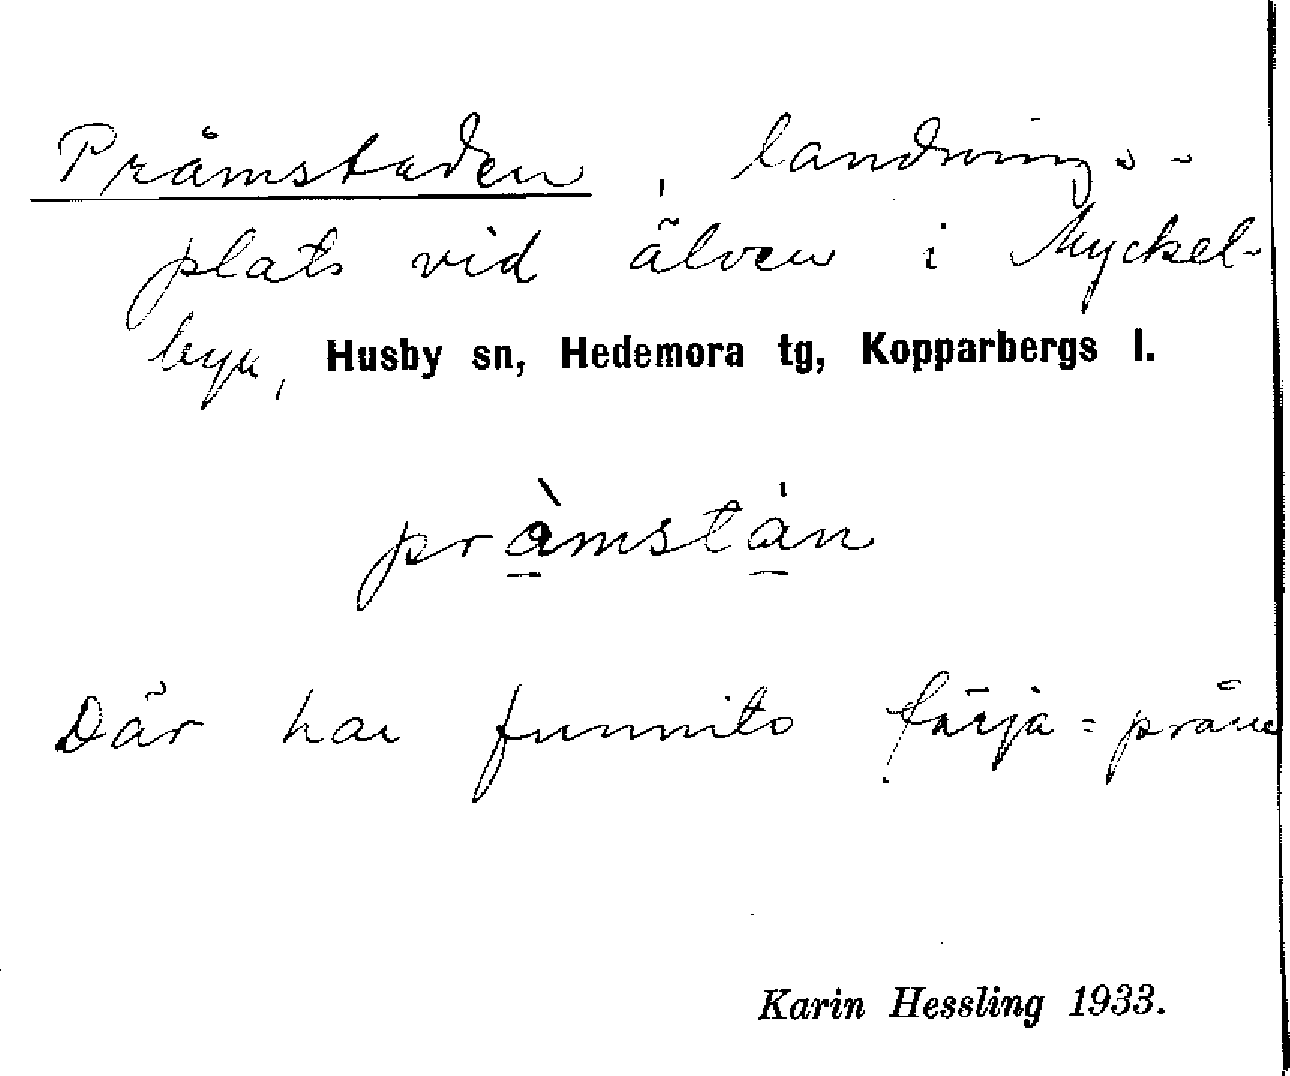 Pråmstaden, landnings-
plats vid älven i Myckel-
byn, Husby sn, Hedemora tg, Kopparbergs l.
pràmstán
Där har funnits färja = pråm
Karin Hessling 1933.